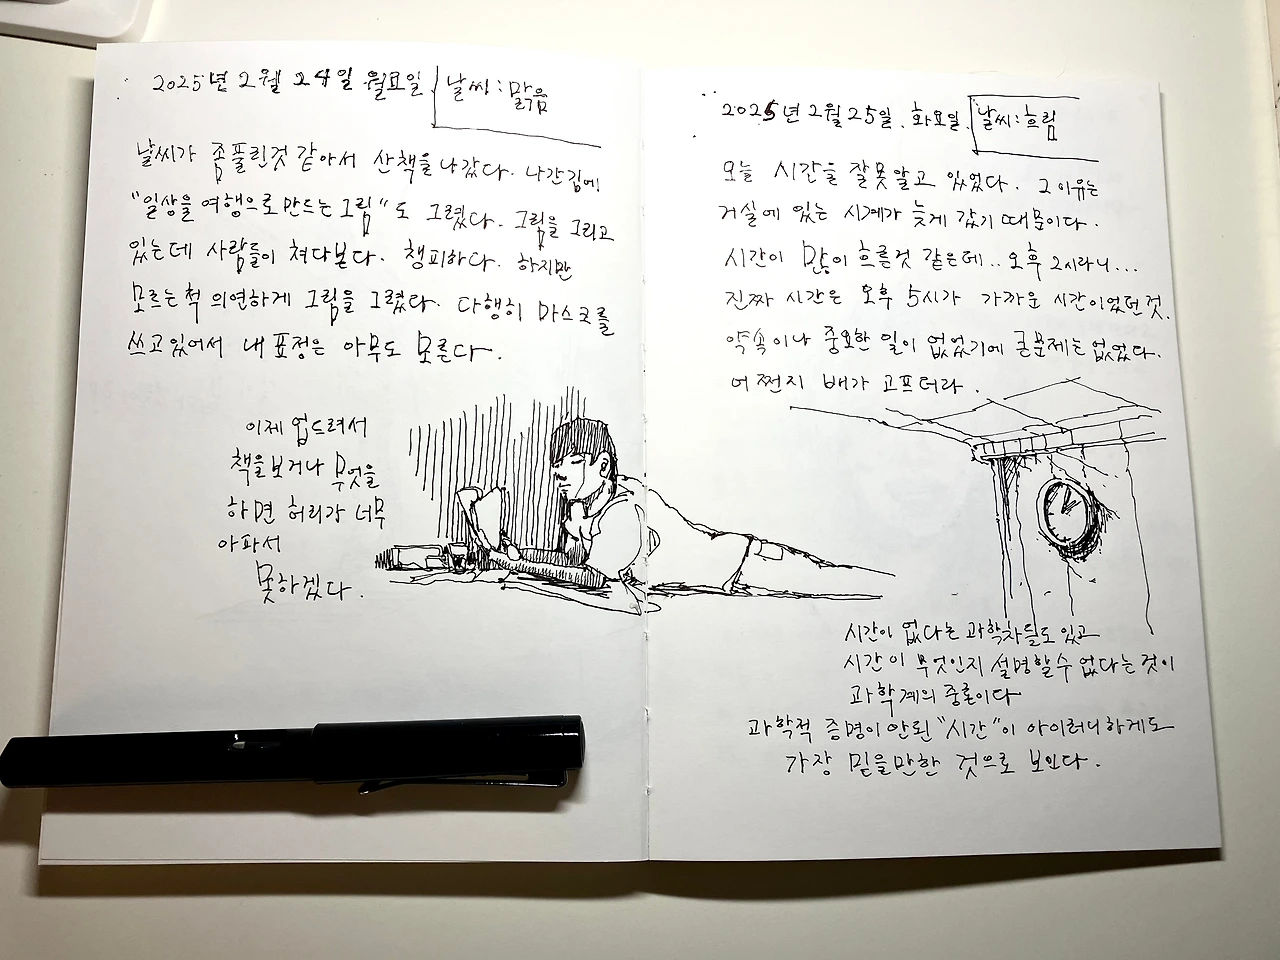 2025년 2월 24일 월요일 날씨: 맑음
날씨가 좀풀린것 같아서 산책을 나갔다. 나간김에
"일상을 여행으로 만드는 그림"도 그렸다. 그림을 그리고
있는데 사람들이 쳐다본다. 챙피하다. 하지만
모르는척 의연하게 그림을 그렸다. 다행히 마스크를
쓰고 있어서 내 표정은 아무도 모른다.
이제 업드려서
책을보거나 무엇을
하면 허리가 너무
아파서
못하겠다.
2025년 2월 25일. 화요일. 날씨: 흐림
오늘 시간을 잘못 알고 있었다. 그 이유는
거실에 있는 시계가 늦게 갔기 때문이다.
시간이 많이 흐른것 같은데.. 오후 2시라니...
진짜 시간은 오후 5시가 가까운 시간이었던 것.
약속이나 중요한 일이 없었기에 큰문제는 없었다.
어쩐지 배가 고프더라.
시간이 없다는 과학자들도 있고
시간이 무엇인지 설명할수 없다는 것이
과학계의 중론이다
과학적 증명이 안된 "시간"이 아이러니하게도
가장 믿을만한 것으로 보인다.